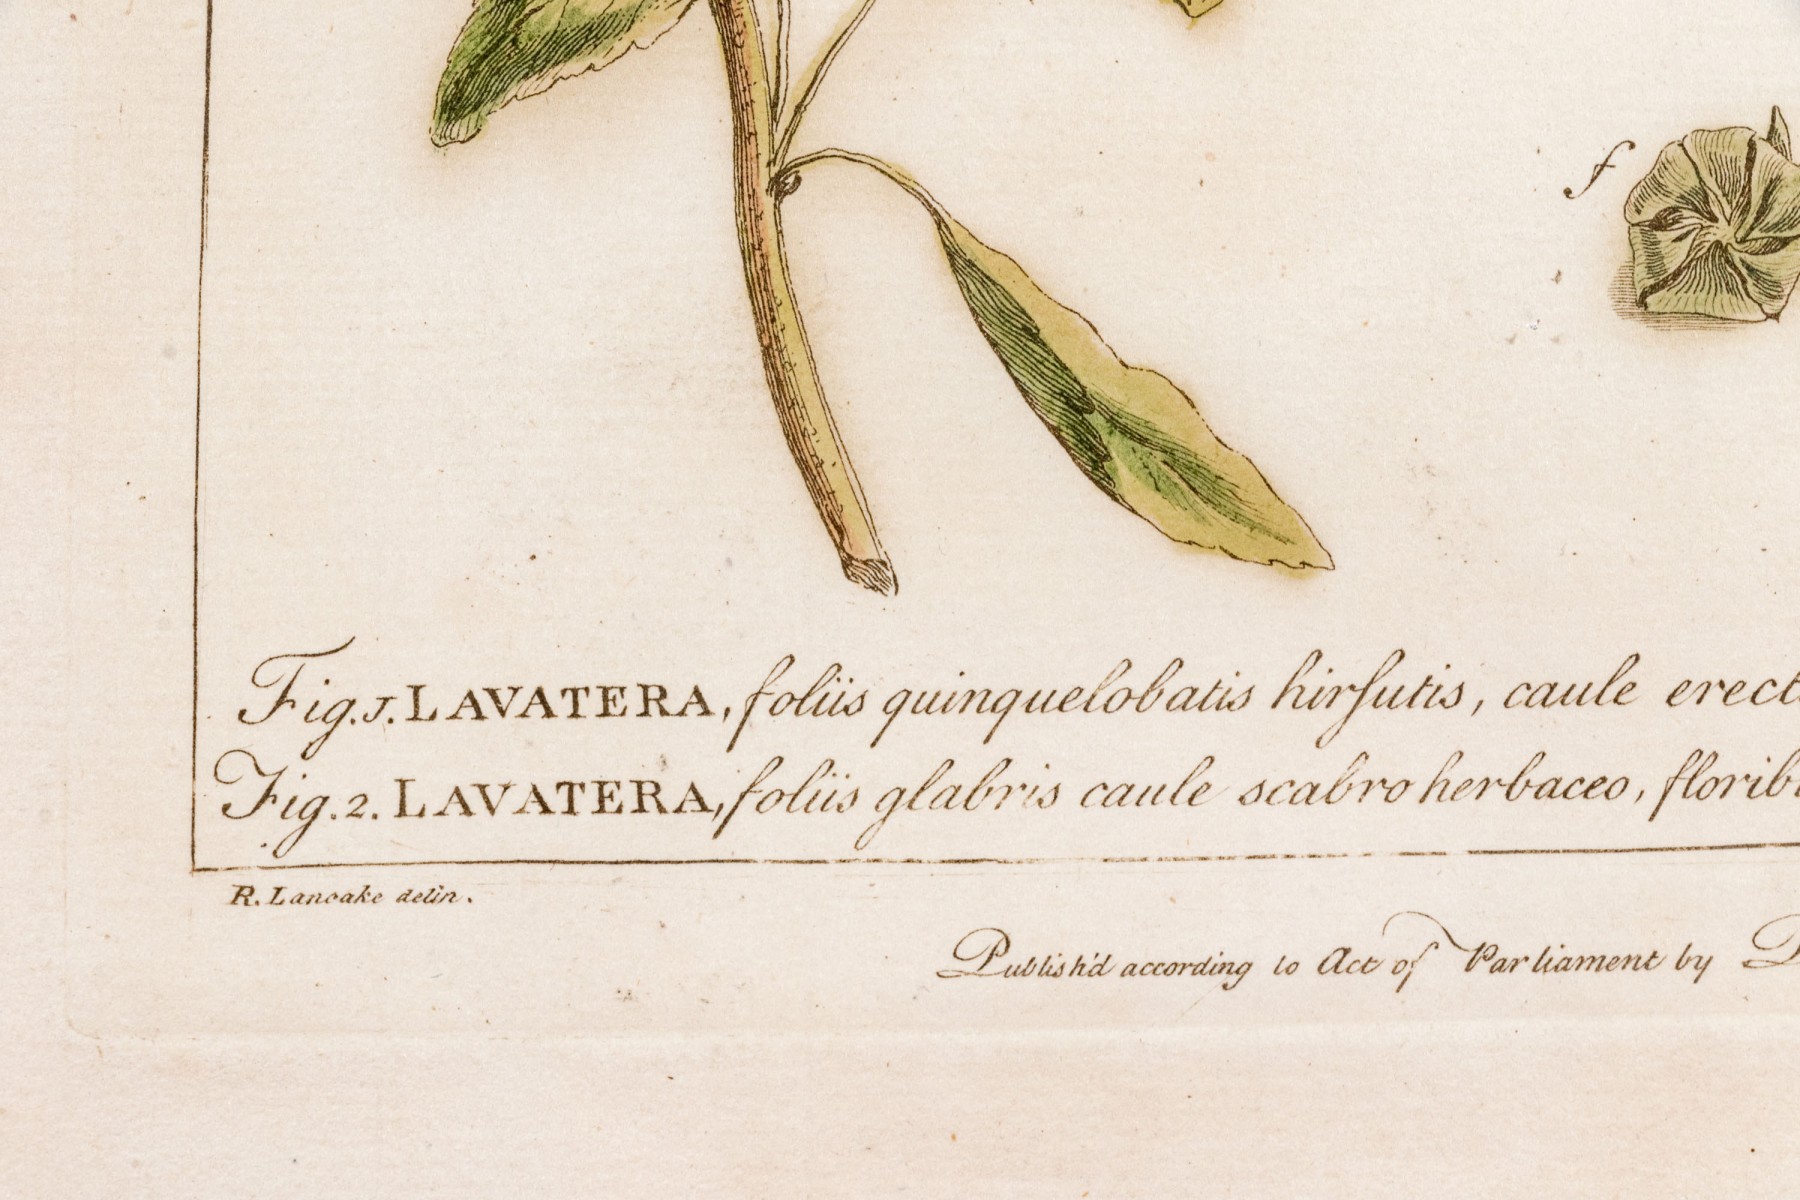 f
Fig. 1. LAVATERA, foliis quinquelobatis hirsutis, caule erect
Fig. 2. LAVATERA, foliis glabris caule scabro herbaceo, florib
R. Lancake delin.
Publish'd according to Act of Parliament by